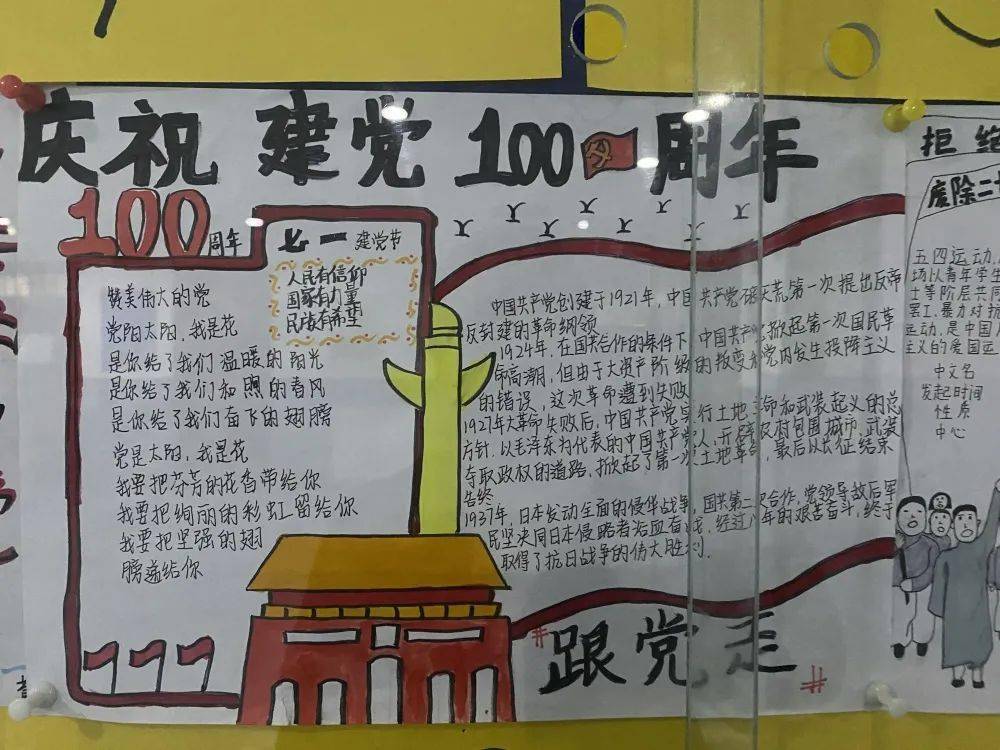 庆祝 建党 100 周年
100周年
七一 建党节
人民有信仰
国家有力量
民族有希望
赞美伟大的党
党阳太阳,我是花
是你给了我们 温暖的 阳光
是你给了我们和 煦 的春风
是你给了我们奋飞的翅膀
党是太阳,我是花
我要把芬芳的花香带给你
我要把绚丽的彩虹留给你
我要把坚强的翅
膀递给你
中国共产党创建于1921年,中国共产党破天荒第一次提出反帝
反封建的革命纲领
1924年,在国共合作的条件下 中国共产党掀起第一次国民革
命高潮,但由于大资产阶级的叛变和党内发生投降主义
的错误,这次革命遭到失败
1927年大革命失败后,中国共产党实行土地革命和武装起义的总
方针,以毛泽东为代表的中国共产党人,开 农村包围城市,武装
夺取政权的道路,掀起了第一次土地革命,最后以长征结束
告终
1937年,日本发动全面的侵华战争,国共第二次合作,党领导敌后军
民坚决同日本侵略者浴血奋战,经过八年的艰苦奋斗,终于
取得了抗日战争的伟大胜利.
跟党走
拒绝
废除二十
五四运动
场以青年学生
士等阶层共同
罢工、暴力对抗
运动,是中国
主义的爱国运
中文名
发起时间
性质
中心